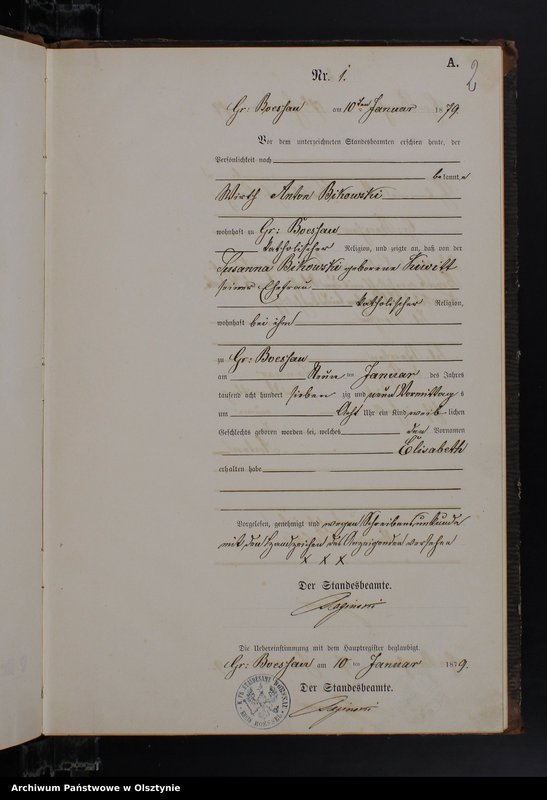 A.
2
Nr. 1.
Gr: Boessau am 10ten Januar 1879.
Vor dem unterzeichneten Standesbeamten erschien heute, der
Persönlichkeit nach
bekannt,
Wirth Anton Bikowski
wohnhaft zu Gr: Boessau
katholischer Religion, und zeigte an, daß von der
Susanna Bikowski geborene Kiwitt
seiner Ehefrau
katholischer Religion,
wohnhaft bei ihm
zu Gr: Boessau
am Neun ten Januar des Jahres
tausend acht hundert sieben zig und neun Vormittag s
um Acht Uhr ein Kind weib lichen
Geschlechts geboren worden sei, welches den Vornamen
Elisabeth
erhalten habe
Vorgelesen, genehmigt und wegen Schreibensunkunde
mit den Handzeichen des Anzeigenden versehen
x x x
Der Standesbeamte.
Die Uebereinstimmung mit dem Hauptregister beglaubigt.
Gr: Boessau am 10 ten Januar 1879.
Der Standesbeamte.
Archiwum Państwowe w Olsztynie